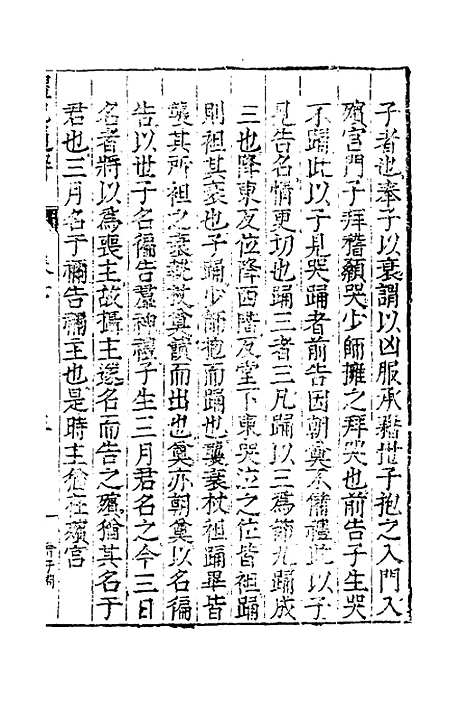 子者也奉子以衰謂以凶服承藉世子抱之入門入
殯宮門子拜稽顙哭少師擁之拜哭也前告子生哭
不踊此以子見哭踊者前告因朝奠不備禮此以子
見告名情更切也踊三者三凡踊以三為節九踊成
三也降東反位降西階反堂下東哭泣之位皆袒踊
則袒其衰也子踊少師抱而踊也襲衰杖袒踊畢皆
襲其所袒之衰絰杖奠讀而出也奠亦朝奠以名徧
告以世子名徧告羣神禮子生三月君名之今三日
名者將以為喪主故攝主遂名而告之殯猶其名于
君也三月名于禰告禰主也是時主猶在殯宮